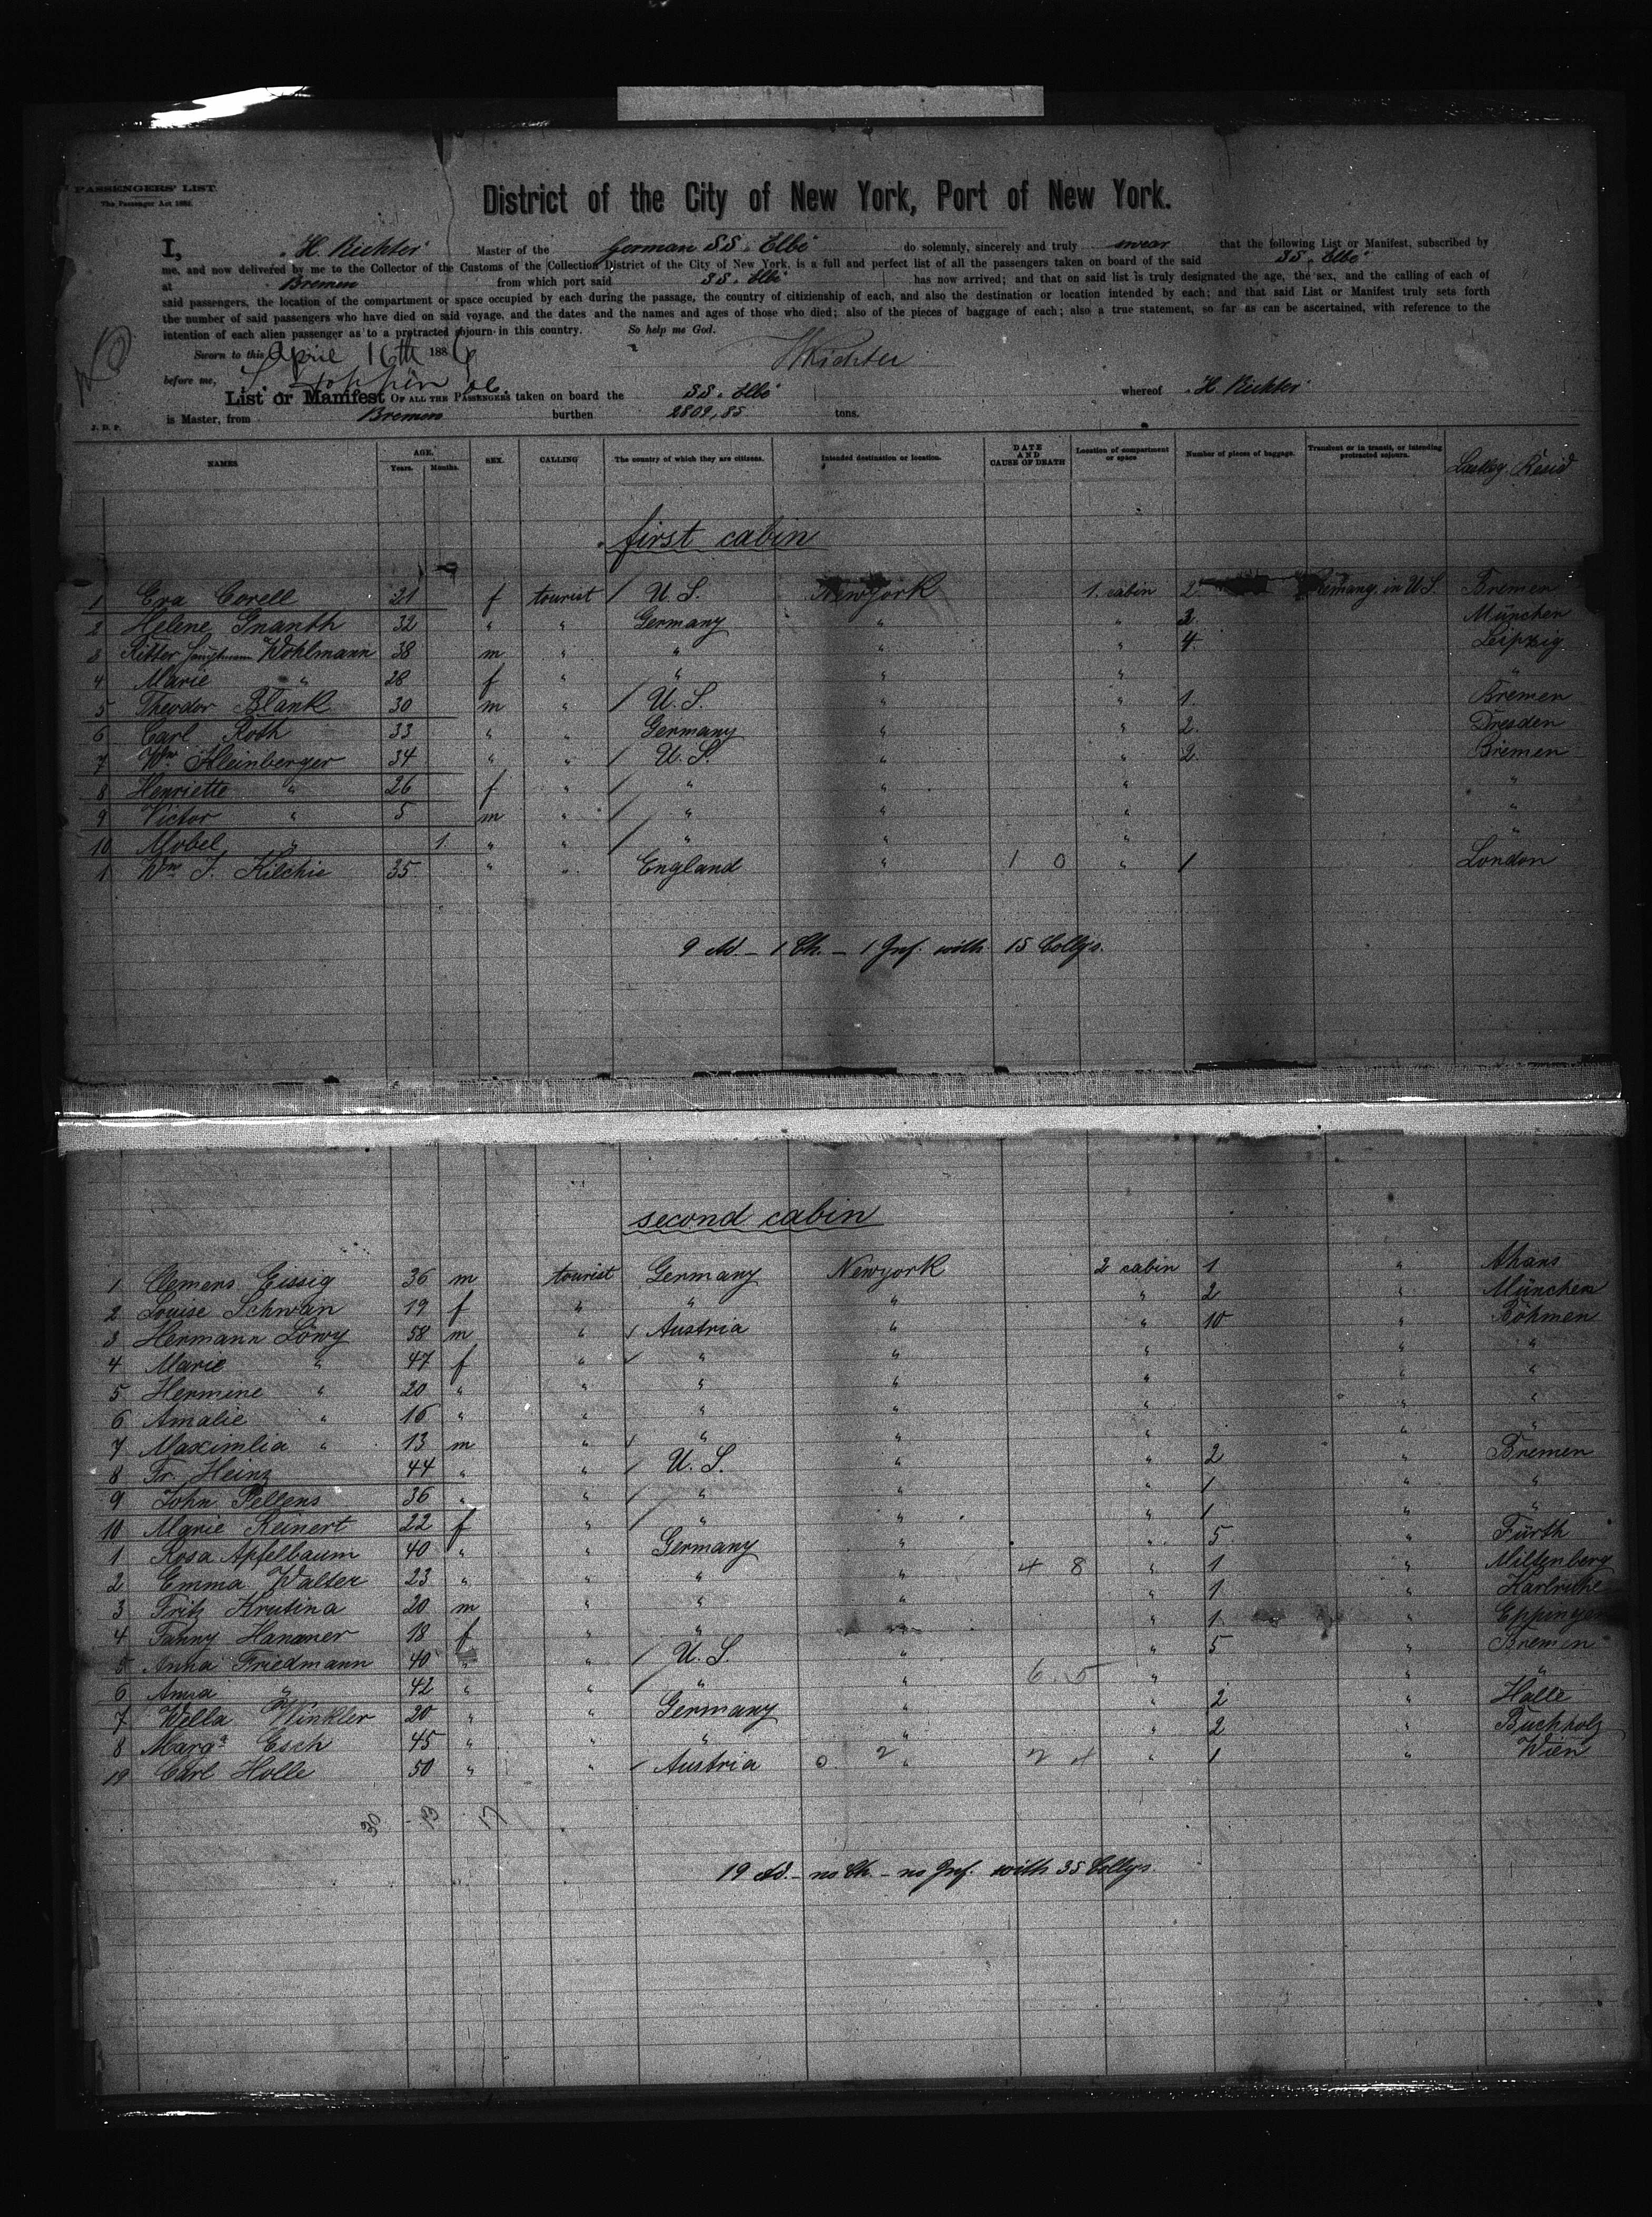 PASSENGERS' LIST.
The Passenger Act 1882.
District of the City of New York, Port of New York.
I, H. Richter Master of the German SS. Elbe do solemnly, sincerely and truly swear that the following List or Manifest, subscribed by
me, and now delivered by me to the Collector of the Customs of the Collection District of the City of New York, is a full and perfect list of all the passengers taken on board of the said SS. Elbe
at Bremen from which port said SS. Elbe has now arrived; and that on said list is truly designated the age, the sex, and the calling of each of
said passengers, the location of the compartment or space occupied by each during the passage, the country of citizienship of each, and also the destination or location intended by each; and that said List or Manifest truly sets forth
the number of said passengers who have died on said voyage, and the dates and the names and ages of those who died; also of the pieces of baggage of each; also a true statement, so far as can be ascertained, with reference to the
intention of each alien passenger as to a protracted sojourn in this country. So help me God.
Sworn to this April 16th 1886 HRichter
before me,
List or Manifest OF ALL THE PASSENGERS taken on board the SS. Elbe whereof H. Richter
is Master, from Bremen burthen 2809,85 tons.
J. D. P.
NAMES AGE. Years. Months. SEX. CALLING The country of which they are citizens. Intended destination or location. DATE AND CAUSE OF DEATH Location of compartment or space Number of pieces of baggage. Transient or in transit, or intending protracted sojourn. Resid
first cabin
1 Eva Corell 21 f tourist / U. S. Newyork 1. cabin 2 in U.S. Bremen
2 Helene Gnanth 32 " " Germany " " 3. München
3 Ritter Wohlmann 38 m " " " " 4. Leipzig
4 Marie " 28 f " " " " "
5 Theodor Blank 30 m " / U. S. " " 1. Bremen
6 Carl Roth 33 " " Germany " " 2. Dresden
7 Wm Kleinberger 34 " " / U. S. " " 2 Bremen
8 Henriette " 26 f " / " " " "
9 Victor " 5 m " / " " "
10 Mobel " 1. " " / " " " "
1 Wm J. Kilchie 35 " " England " 1 0 " 1 London
9 Ad. – 1 Ch. – 1 Inf. with 15 Collys.
second cabin
1 Clemens Eissig 36 m tourist Germany Newyork 2 cabin 1 " Ahaus
2 Louise Schwan 19 f " " " " 2 " München
3 Hermann Löwy 58 m " / Austria " " 10 " Böhmen
4 Marie " 47 f " / " " " " "
5 Hermine " 20 " " " " " " "
6 Amalie " 16 " " " " " " "
7 Maximlia " 13 m " / " " " " "
8 Fr. Heinz 44 " " / U. S. " " 2 " Bremen
9 John Pellens 36 " " / " " " 1 " "
10 Marie Reinert 22 f " / " " " 1 " "
1 Rosa Apfelbaum 40 " " Germany " " 5 " Fürth
2 Emma Walter 23 " " " " 4 8 " 1 " Miltenberg
3 Fritz Krutina 20 m " " " " 1 " Karlruhe
4 Fanny Hananer 18 f " " " " 1 " Eppingen
5 Anna Friedmann 40 " / U. S. " " 5 " Bremen
6 Anna " 42 " " / " " 6 5 " " "
7 Wella Winkler 20 " " Germany " " 2 " Halle
8 Marga Esch 45 " " " " " 2 " Buchholz
19 Carl Holle 50 " " / Austria 0 2 " 2 4 " 1 " Wien
30 - 13 17
19 Ad. – no Ch. – no Inf. with 35 Collys